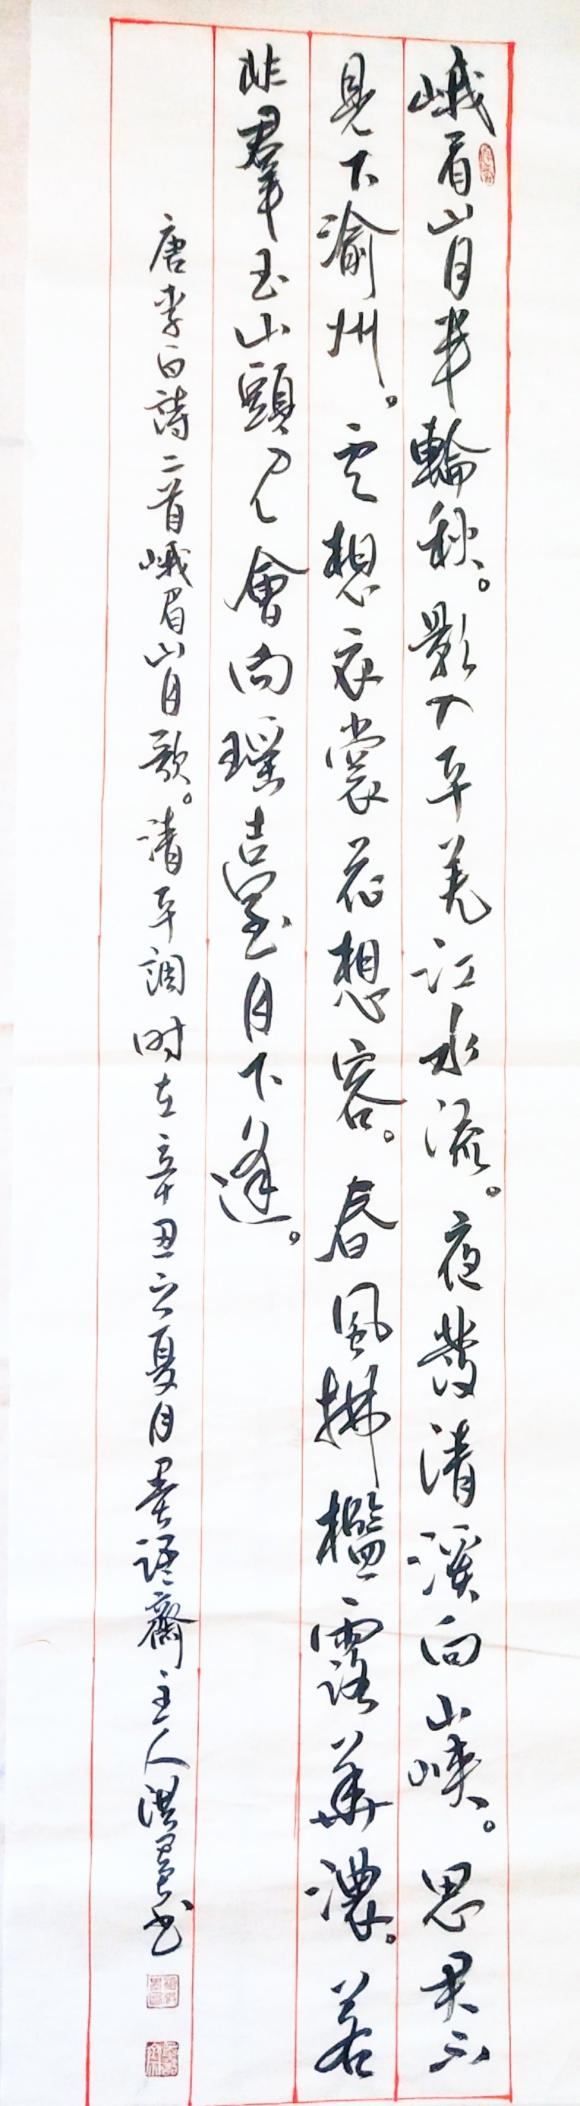 峨眉山月半輪秋。影入平羌江水流。夜發清溪向三峽。思君不
見下渝州。雲想衣裳花想容。春風拂檻露華濃。若
非羣玉山頭見會向瑤臺月下逢。
唐李白詩二首峨眉山月歌。清平調时在辛丑之夏月墨语齋主人洪書